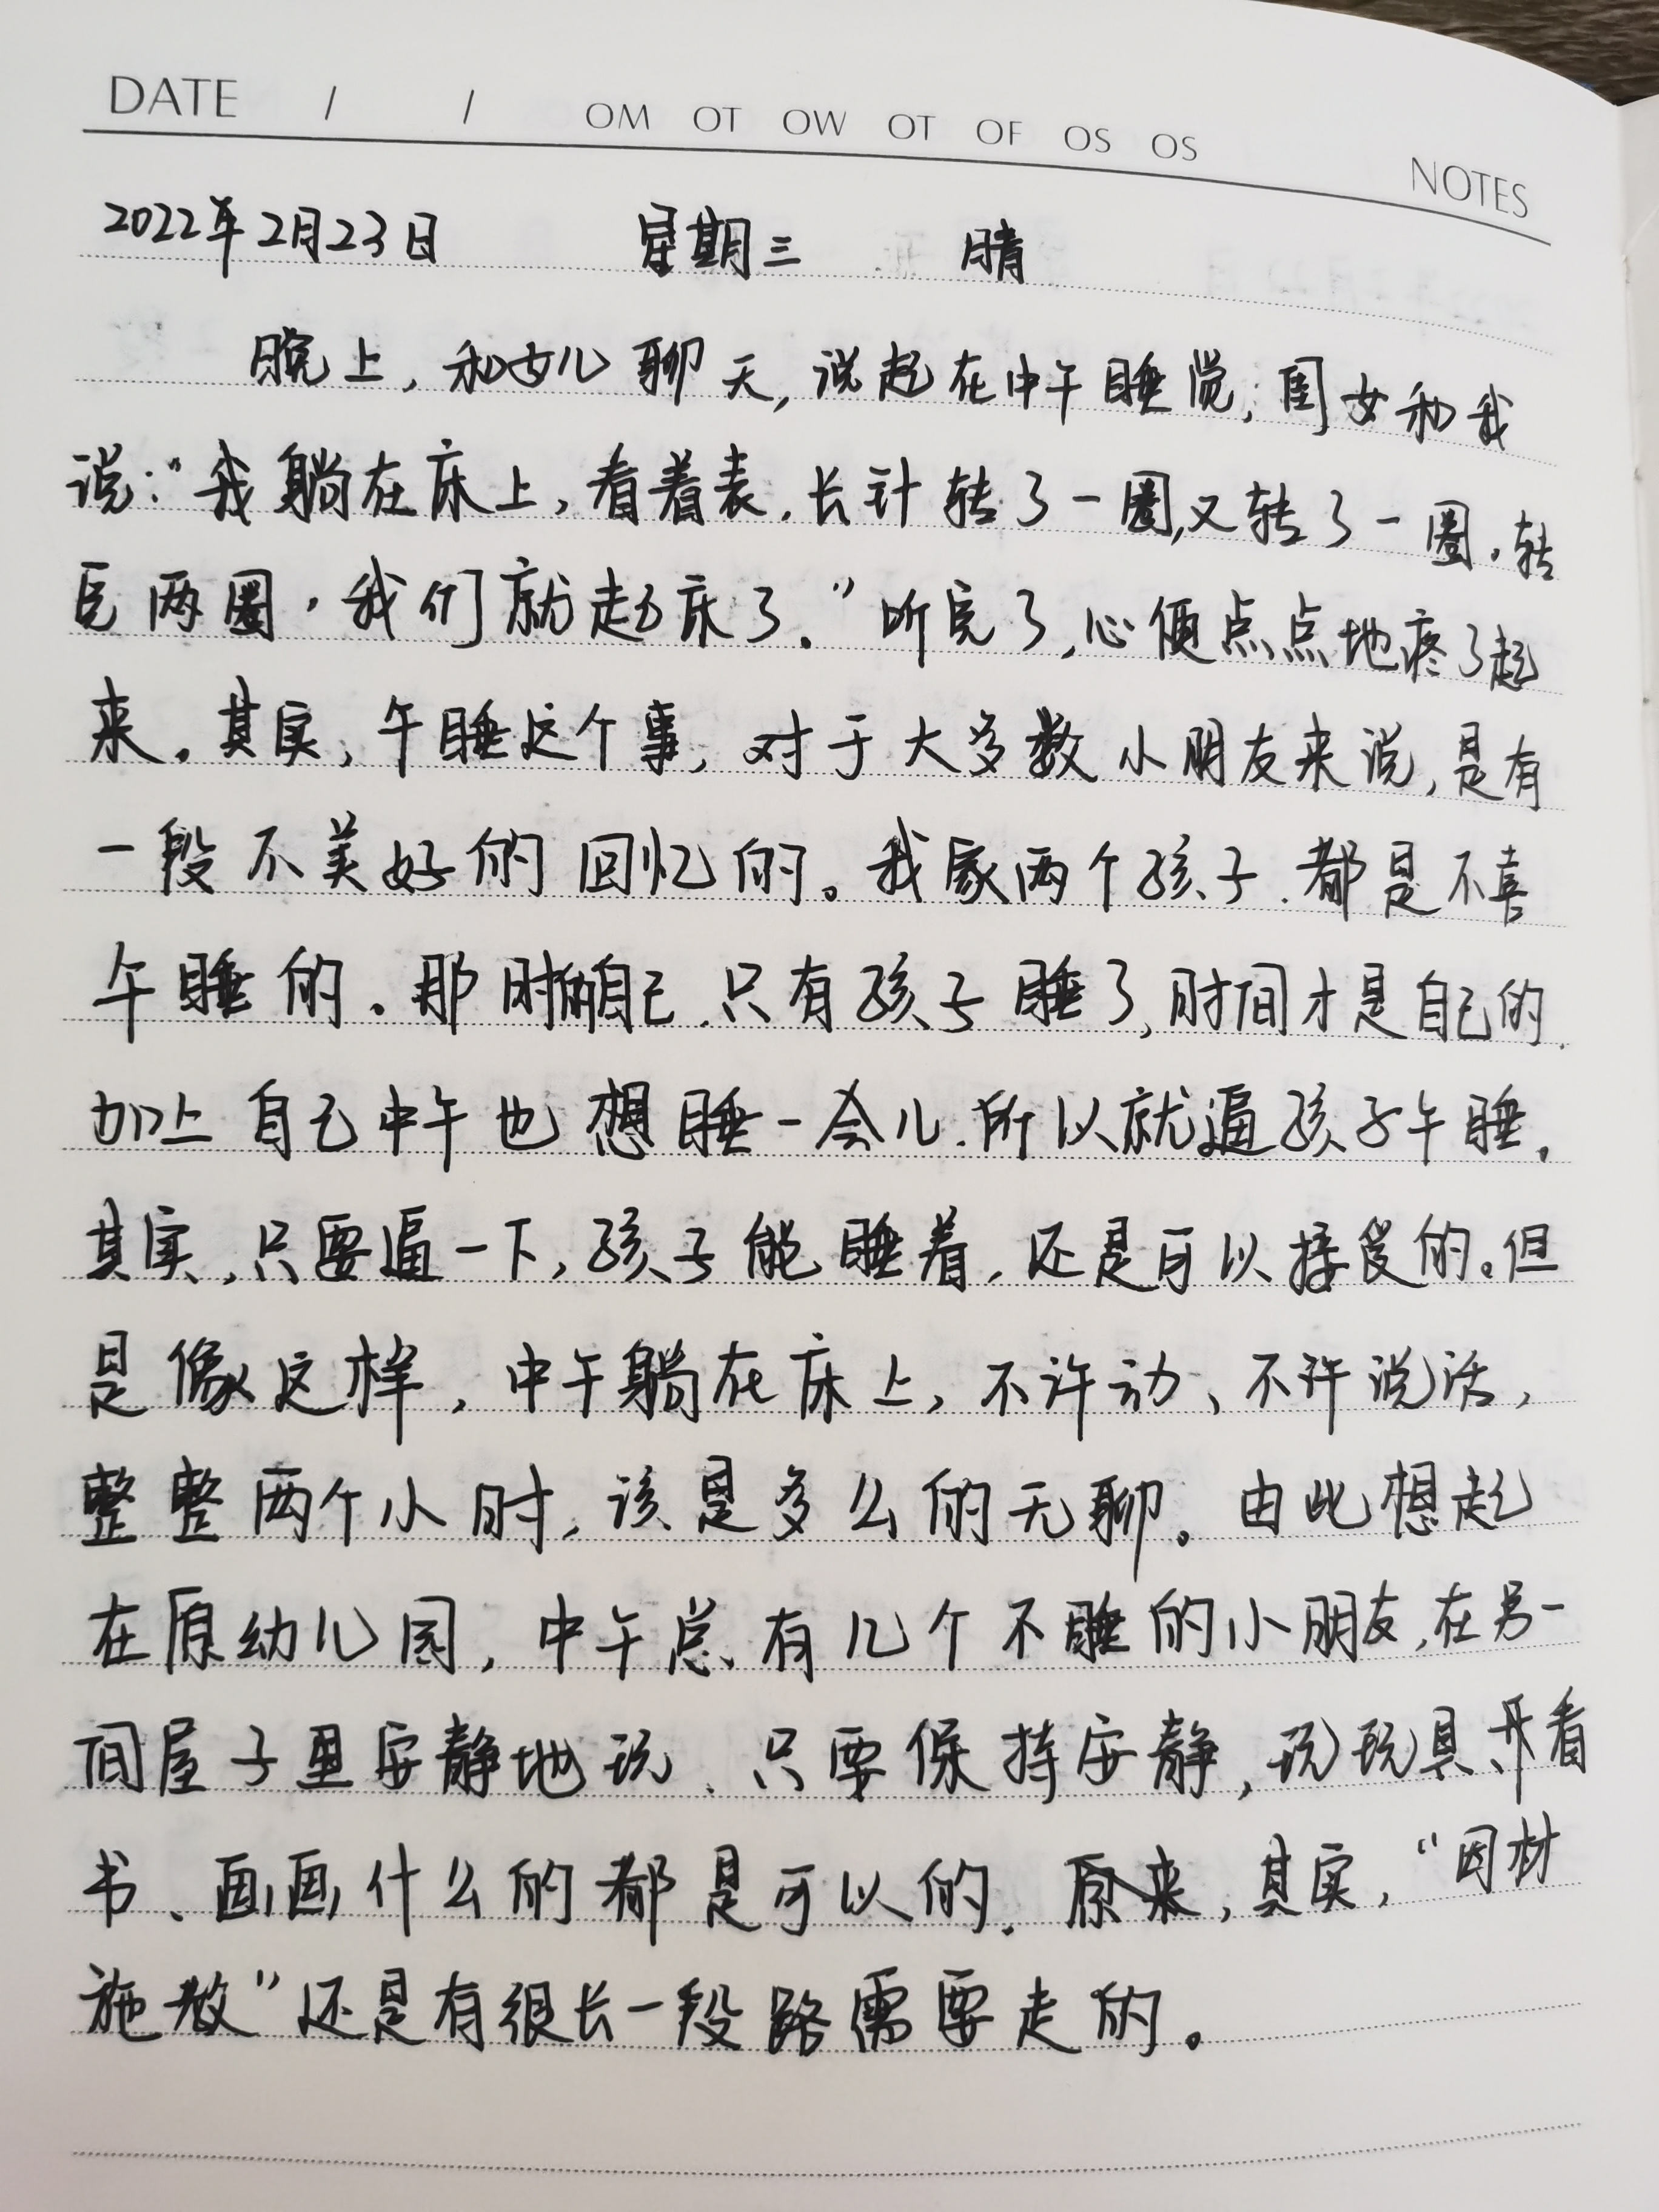 DATE / / OM OT OW OT OF OS OS NOTES
2022年2月23日 星期三 晴
晚上，和女儿聊天，说起在中午睡觉，闺女和我
说：“我躺在床上，看着表，长针转了一圈，又转了一圈，转
完两圈，我们就起床了。”听完了，心便点点地疼了起
来。其实，午睡这个事，对于大多数小朋友来说，是有
一段不美好的回忆的。我家两个孩子，都是不喜
午睡的。那时的自己，只有孩子睡了，时间才是自己的，
加上自己中午也想睡一会儿，所以就逼孩子午睡。
其实，只要逼一下，孩子能睡着，还是可以接受的。但
是像这样，中午躺在床上，不许动、不许说话，
整整两个小时，该是多么的无聊。由此想起
在原幼儿园，中午总有几个不睡的小朋友，在另一
间屋子里安静地玩，只要保持安静，玩玩具、看
书、画画什么的都是可以的。原来，其实，“因材
施教”还是有很长一段路需要走的。